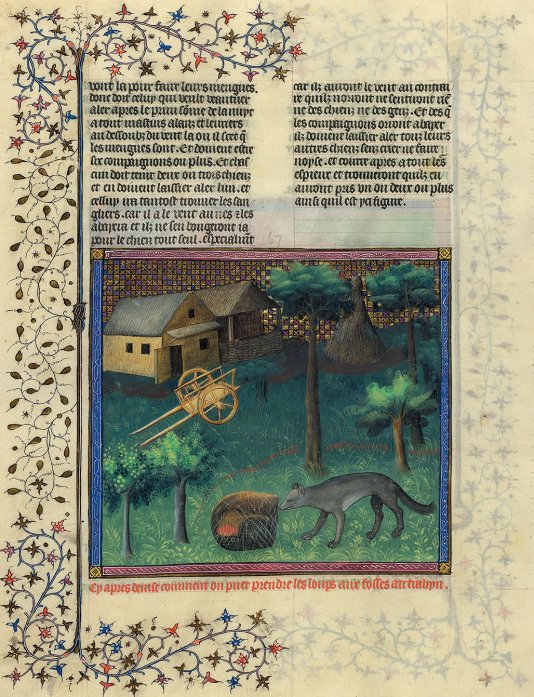 vont la pour faire leurs mengues.
donc doit celuy qui veult
aler apres le prim somme de la nuyt
a tout mastins alanz et levriers
au dessoulz du vent la ou il scet que
les mengues sont. Et doivent estre
six compaignons ou plus. Et chas
cun doit tenir deux ou trois chienz
et en doivent laissier aler lun. et
celluy un tantost trouver les san
gliers. car il a le vent au nes et les
abayera et ilz ne sen bougeront ia
pour le chien tout seul. especialmt
car ilz auront le vent au contrai
re quilz norront ne sentiront ne
ne des chienz ne des genz. Et des q̃
les compaignons oront abayer
ilz doivent laissier aler touz leurs
autres chienz senz crier ne faire
noyse. et courir apres a tout les
espieux et trouveront quilz en
auront pris un ou deux ou plus
ainsi quil est yci figure.
Cy apres devise comment on puet prendre les loups aux fosses au trahyn.